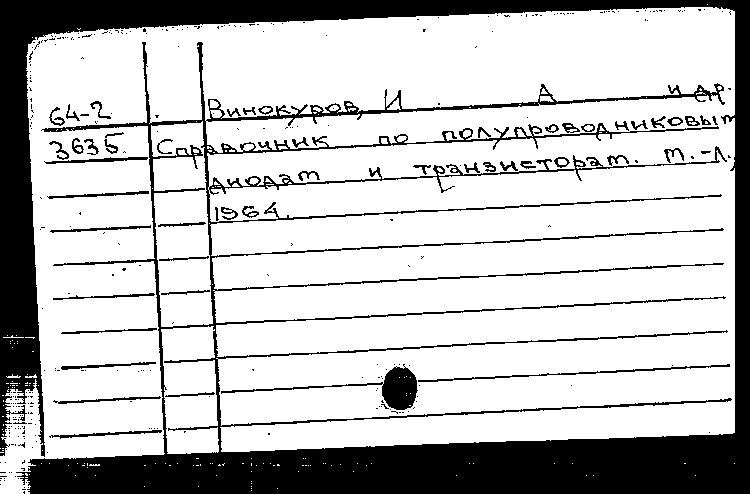 64-2 Винокуров, И. А и др.
3635. Справочник по полупроводниковым
диодам и транзисторам. М.-Л.,
1964.